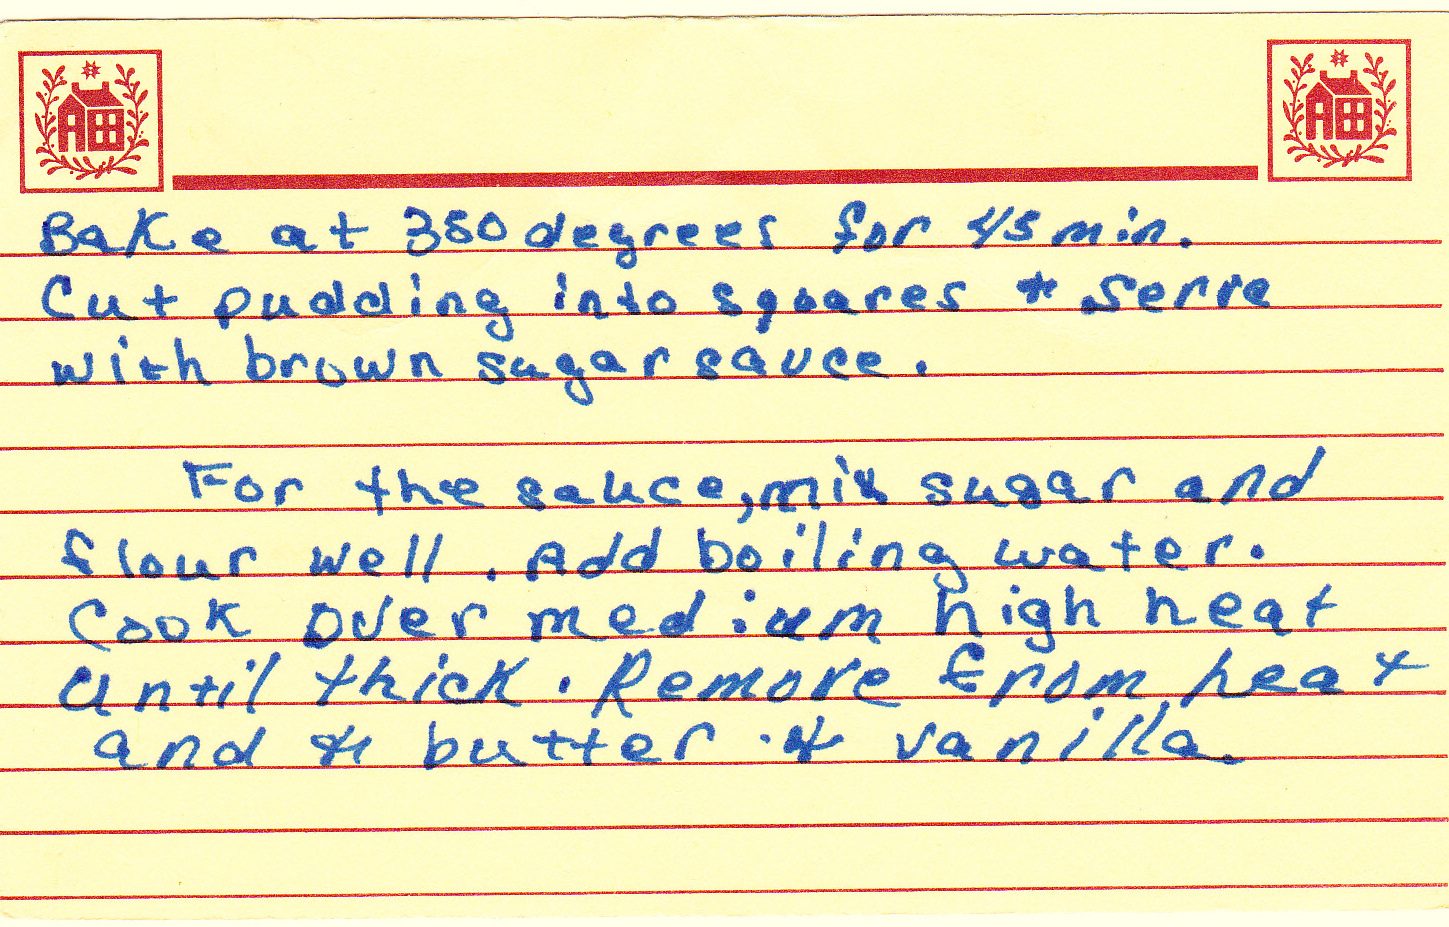 Bake at 350 degrees for 45 min.
Cut pudding into squares + serve
with brown sugar sauce.
For the sauce, mix sugar and
flour well. Add boiling water.
Cook over medium high heat
until thick. Remove from heat
and + butter + vanilla.